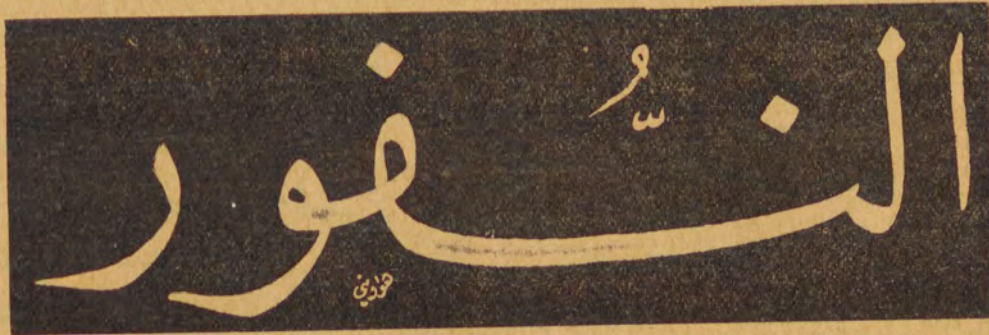 النُّفور
هواويني